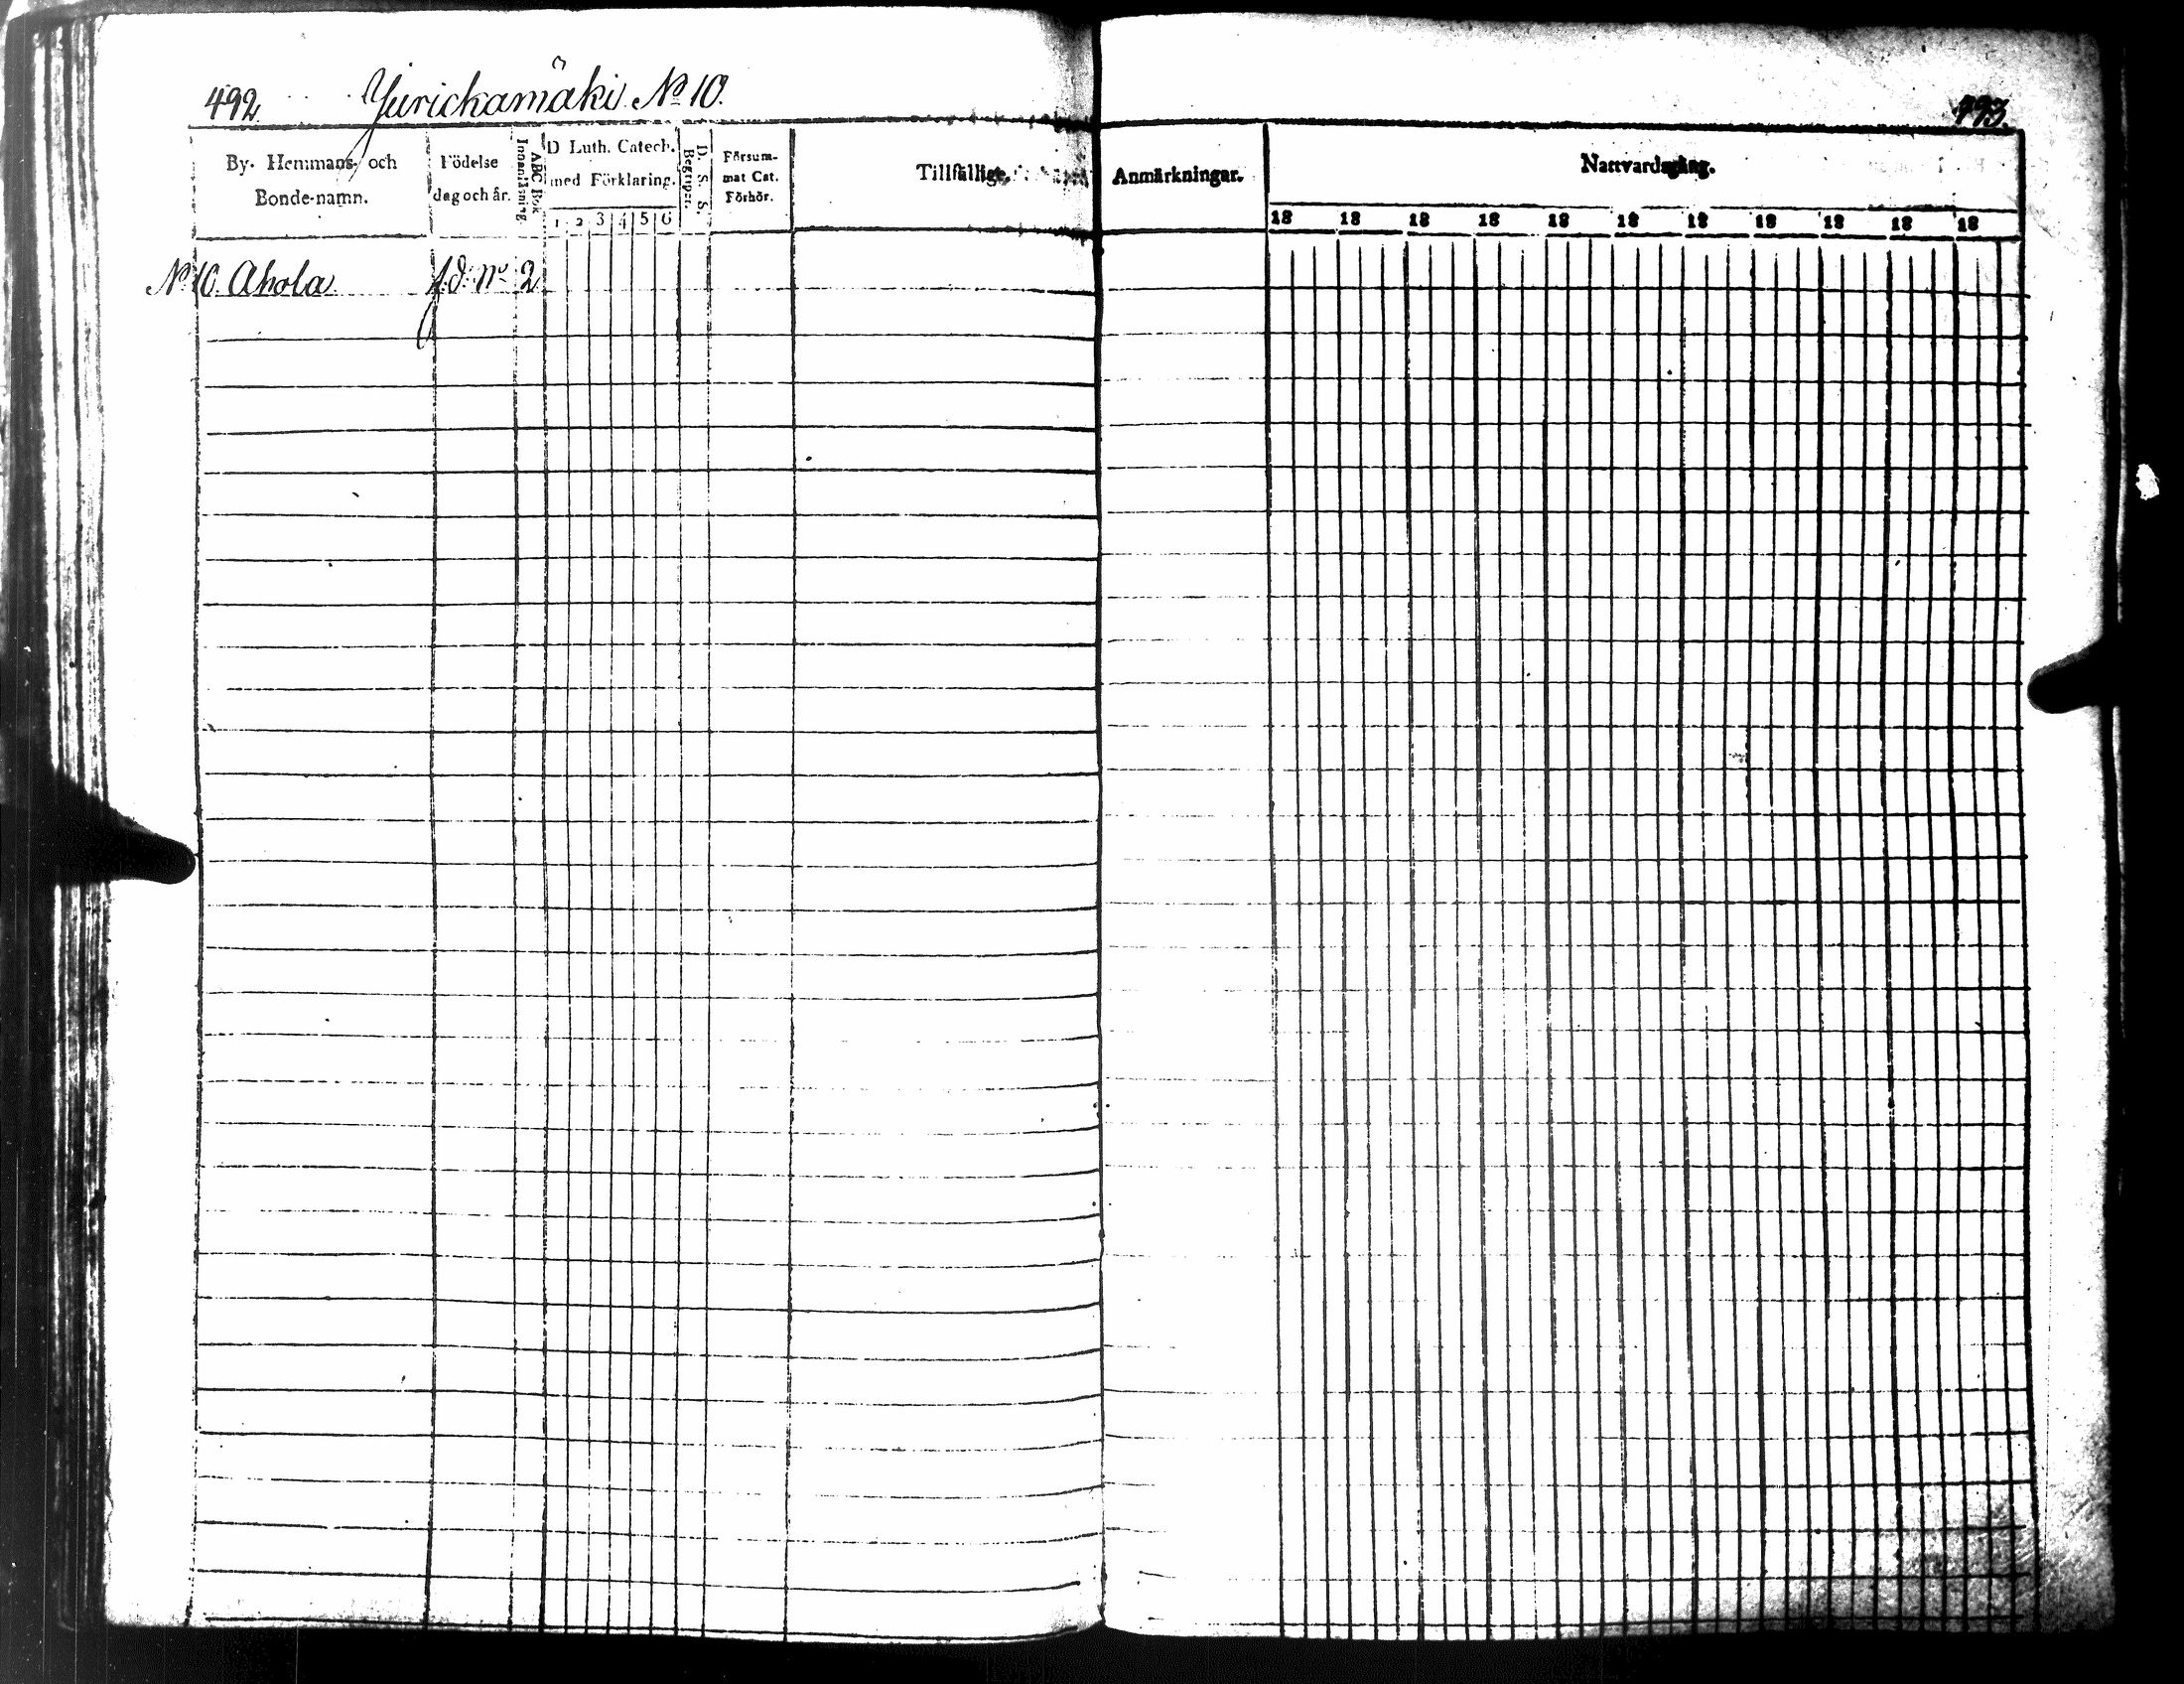 492 Jurickamäki No 10.
493.
By- Hemmans- och Bonde-namn.
Födelse dag och år.
ABC Bok Innanläsning.
D Luth. Catech. med Förklaring.
1 2 3 4 5 6
D. S. S. Begriper.
Försummat Cat. Förhör.
Tillfällige
Anmärkningar.
Nattvardsgång.
18 18 18 18 18 18 18 18 18 18 18
No 10. Ahola f.d. No 2